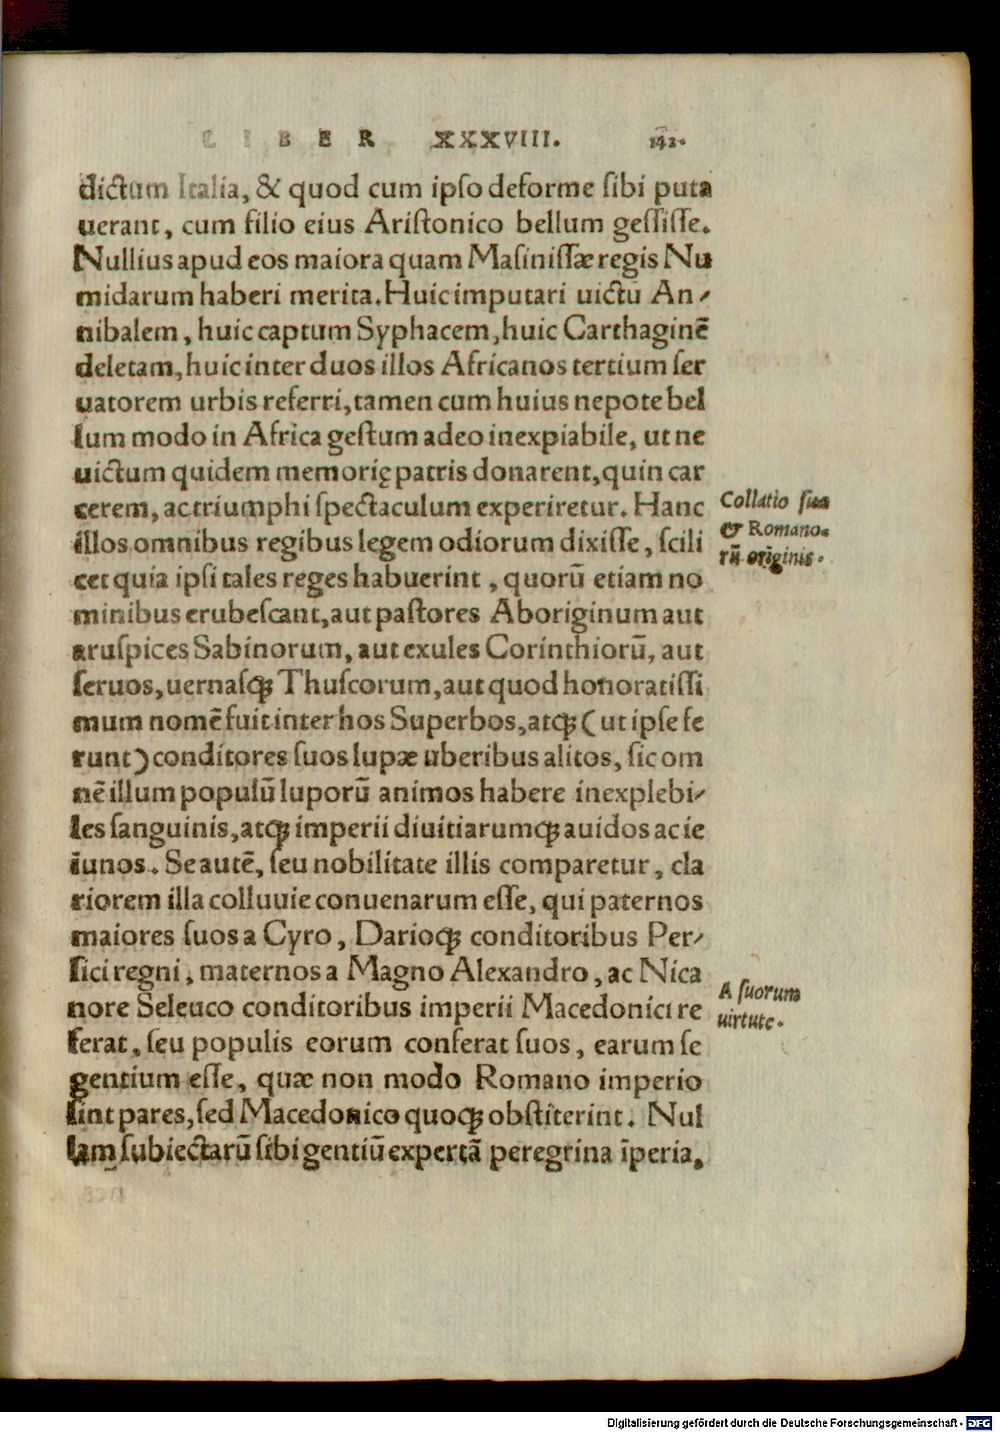 LIBER XXXVIII. 142.
dictum Italia, & quod cum ipso deforme sibi puta
uerant, cum filio eius Aristonico bellum gessisse.
Nullius apud eos maiora quam Masinissæ regis Nu
midarum haberi merita. Huic imputari uictū An-
nibalem, huic captum Syphacem, huic Carthaginē
deletam, huic inter duos illos Africanos tertium ser
uatorem urbis referri, tamen cum huius nepote bel
lum modo in Africa gestum adeo inexpiabile, ut ne
uictum quidem memorię patris donarent, quin car
cerem, ac triumphi spectaculum experiretur. Hanc
illos omnibus regibus legem odiorum dixisse, scili
cet quia ipsi tales reges habuerint, quorū etiam no
minibus erubescant, aut pastores Aboriginum aut
aruspices Sabinorum, aut exules Corinthiorū, aut
seruos, uernasqꝫ Thuscorum, aut quod honoratissi
mum nomē fuit inter hos Superbos, atqꝫ (ut ipse fe
runt) conditores suos lupæ uberibus alitos, sic om
nē illum populū luporū animos habere inexplebi-
les sanguinis, atqꝫ imperii diuitiarumqꝫ auidos ac ie
iunos. Se autē, seu nobilitate illis comparetur, cla
riorem illa colluuie conuenarum esse, qui paternos
maiores suos a Cyro, Darioqꝫ conditoribus Per-
sici regni, maternos a Magno Alexandro, ac Nica
nore Seleuco conditoribus imperii Macedonici re
ferat, seu populis eorum conferat suos, earum se
gentium esse, quæ non modo Romano imperio
sint pares, sed Macedonico quoqꝫ obstiterint. Nul
lam subiectarū sibi gentiū expertā peregrina īperia,
Collatio sua
& Romano-
rū originis.
A suorum
uirtute.
Digitalisierung gefördert durch die Deutsche Forschungsgemeinschaft - DFG